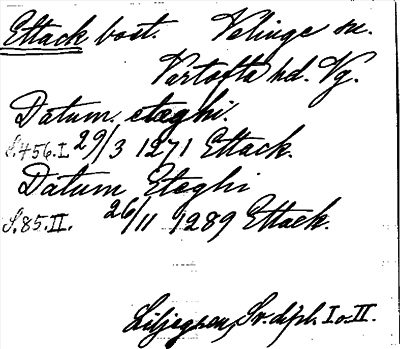 Ettack bost. Velinge sn.
Vartofta hd. Vg.
Datum etæghi.
S.456.I 29/3 1271 Ettack.
Datum Etæghi
S.85.II. 26/11 1289 Ettack.
Liljegren, Sv. dipl. I o. II.